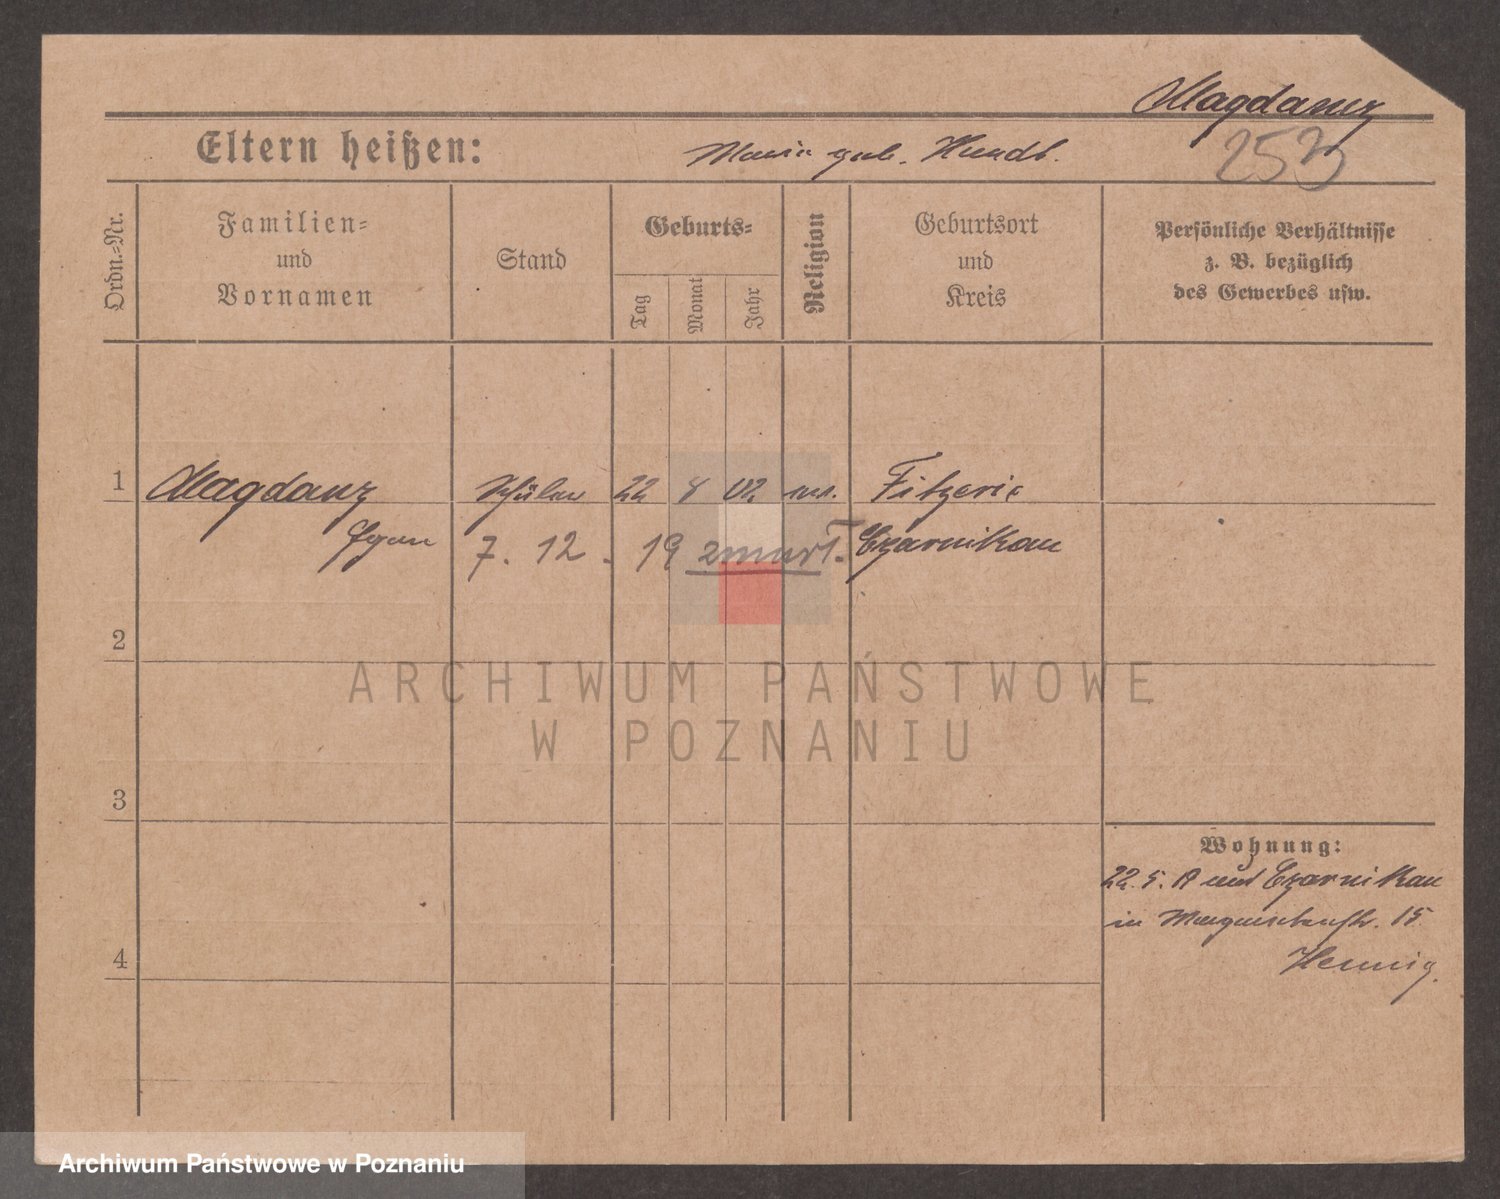 Magdanz
Eltern heißen: Maria geb. Hundt. 253
Ordn.-Nr.
Familien-
und
Vornamen
Stand
Geburts-
Tag
Monat
Jahr
Religion
Geburtsort
und
Kreis
Persönliche Verhältnisse
z. B. bezüglich
des Gewerbes usw.
1 Magdanz Schüler 22 8 02 Fitzerie
Egon 7. 12. 19 zmarł. Czarnikau
2
ARCHIWUM PAŃSTWOWE
W POZNANIU
3
Wohnung:
22. 5. und Czarnikau
in 15
Hennig.
4
Archiwum Państwowe w Poznaniu